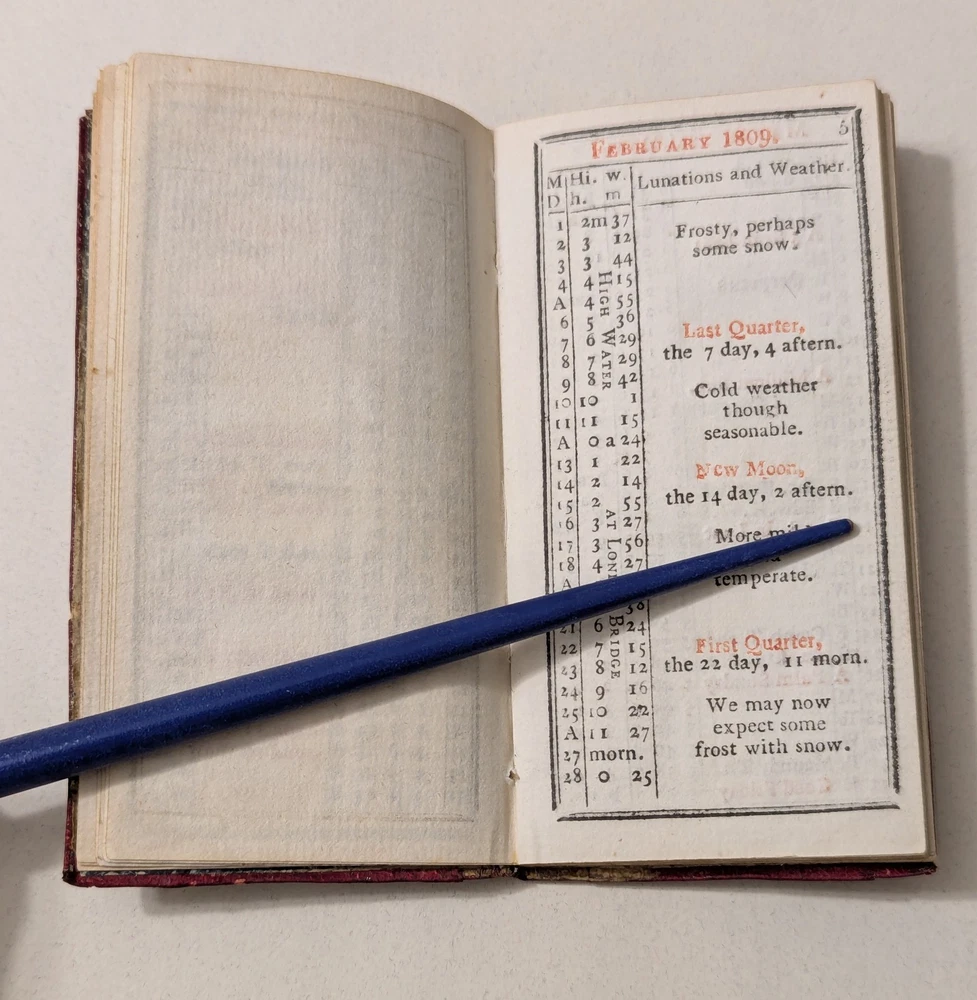 FEBRUARY 1809. 5
M Hi. w. Lunations and Weather.
D h. m
1 2m 37
2 3 12
3 3 44
4 4 15
A 4 55
6 5 36
7 6 29
8 7 29
9 8 42
10 10 1
11 11 15
A 0 a 24
13 1 22
14 2 14
15 2 55
16 3 27
17 3 56
18 4 27
A
30
21 6 24
22 7 15
23 8 12
24 9 16
25 10 22
A 11 27
27 morn.
28 0 25
HIGH WATER
AT
BRIDGE
Frosty, perhaps
some snow.
Last Quarter,
the 7 day, 4 aftern.
Cold weather
though
seasonable.
New Moon,
the 14 day, 2 aftern.
More
temperate.
First Quarter,
the 22 day, 11 morn.
We may now
expect some
frost with snow.